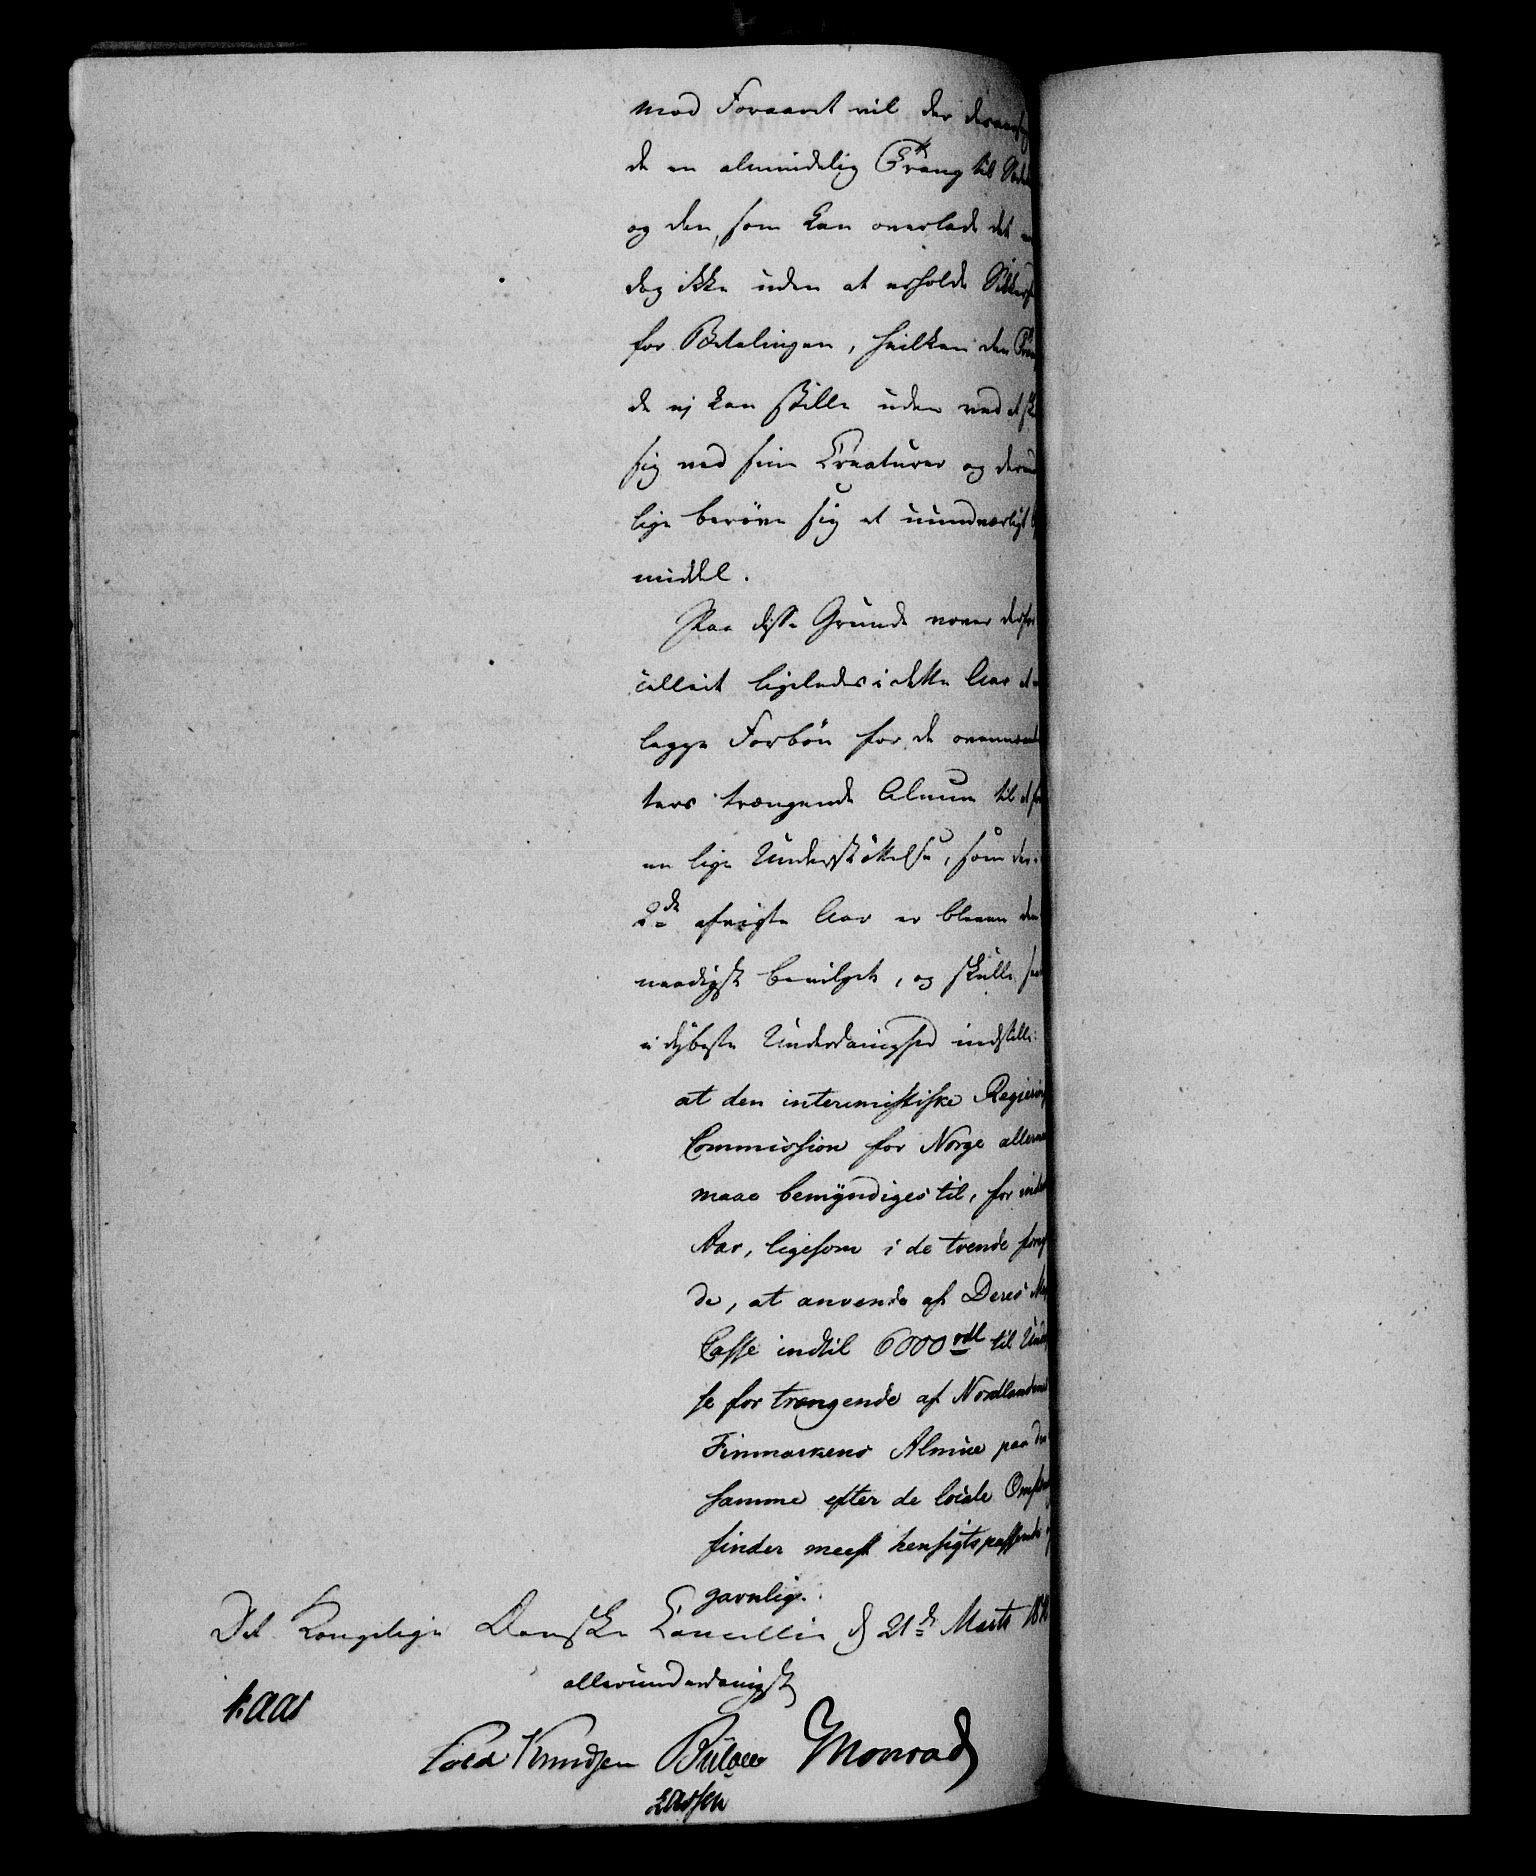 mod Foraaret vil der
de en almindelig Trang til
og den, som kan overlade det
dog ikke uden at erholde Sikkerh
for Betalingen, hvilken den Træng
de ej kan stille uden ved at
sig ved sine Creaturer og
lige beröve sig et uundværligt
middel.
Paa disse Grunde vover
celliet ligeledes i dette Aar at
legge Forbön for de ovennævn
ters trængende Almue til at
en lige Understöttelse, som der i
2de afvigte Aar er bleven dem
naadigst bevilget, og skulle
i dybeste Underdanighed indstille:
at den interimistiske Regierings
Commission for Norge allern
maae bemyndiges til, for
Aar, ligesom i de tvende foreg
de, at anvende af Deres Maj
Casse indtil 6000 rdl til Under
se for trængende af Nordlandene
Finmarkens Almue paa den
samme efter de locale Omstæn
finder meest hensigtspassende
gavnlig.
Det Kongelige Danske Cancellie d 21de Marts 181
allerunderdanigst
Kaas
Cold Knudsen Bülow Monrad
Lassen